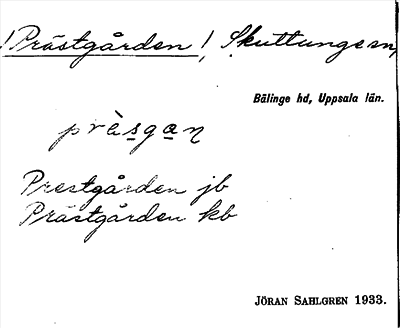 ! Prästgården ! Skuttunge sn,
Bälinge hd, Uppsala län.
prèsgan
Prestgården jb
Prästgården kb
JÖRAN SAHLGREN 1933.